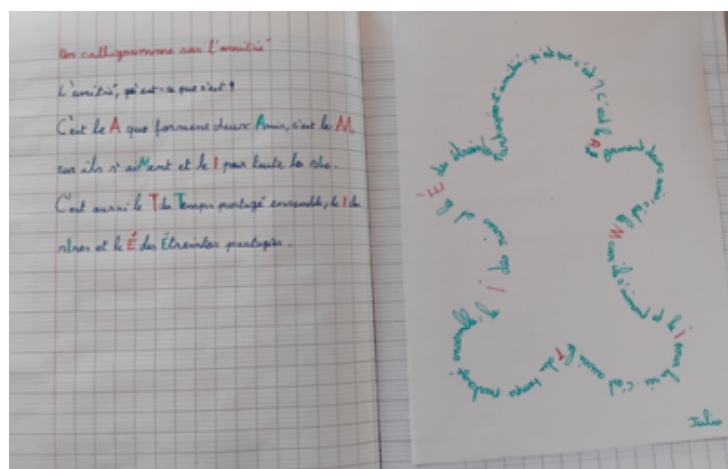 Un calligramme sur l'amitié
L'amitié, qu'est-ce que c'est ?
C'est le A que forment deux Amis, c'est le M
car ils s'aiMent et le I pour toute la vie.
C'est aussi le T du Temps partagé ensemble, le I des
rIres et le É des Étreintes partagées.
L'amitié, qu'est que c'est ? C'est le A formant deux amis c'est le M car ils s'aiment et le I pour la vie c'est aussi le T du temps partagé le I des rires et le É des étreintes
Julia